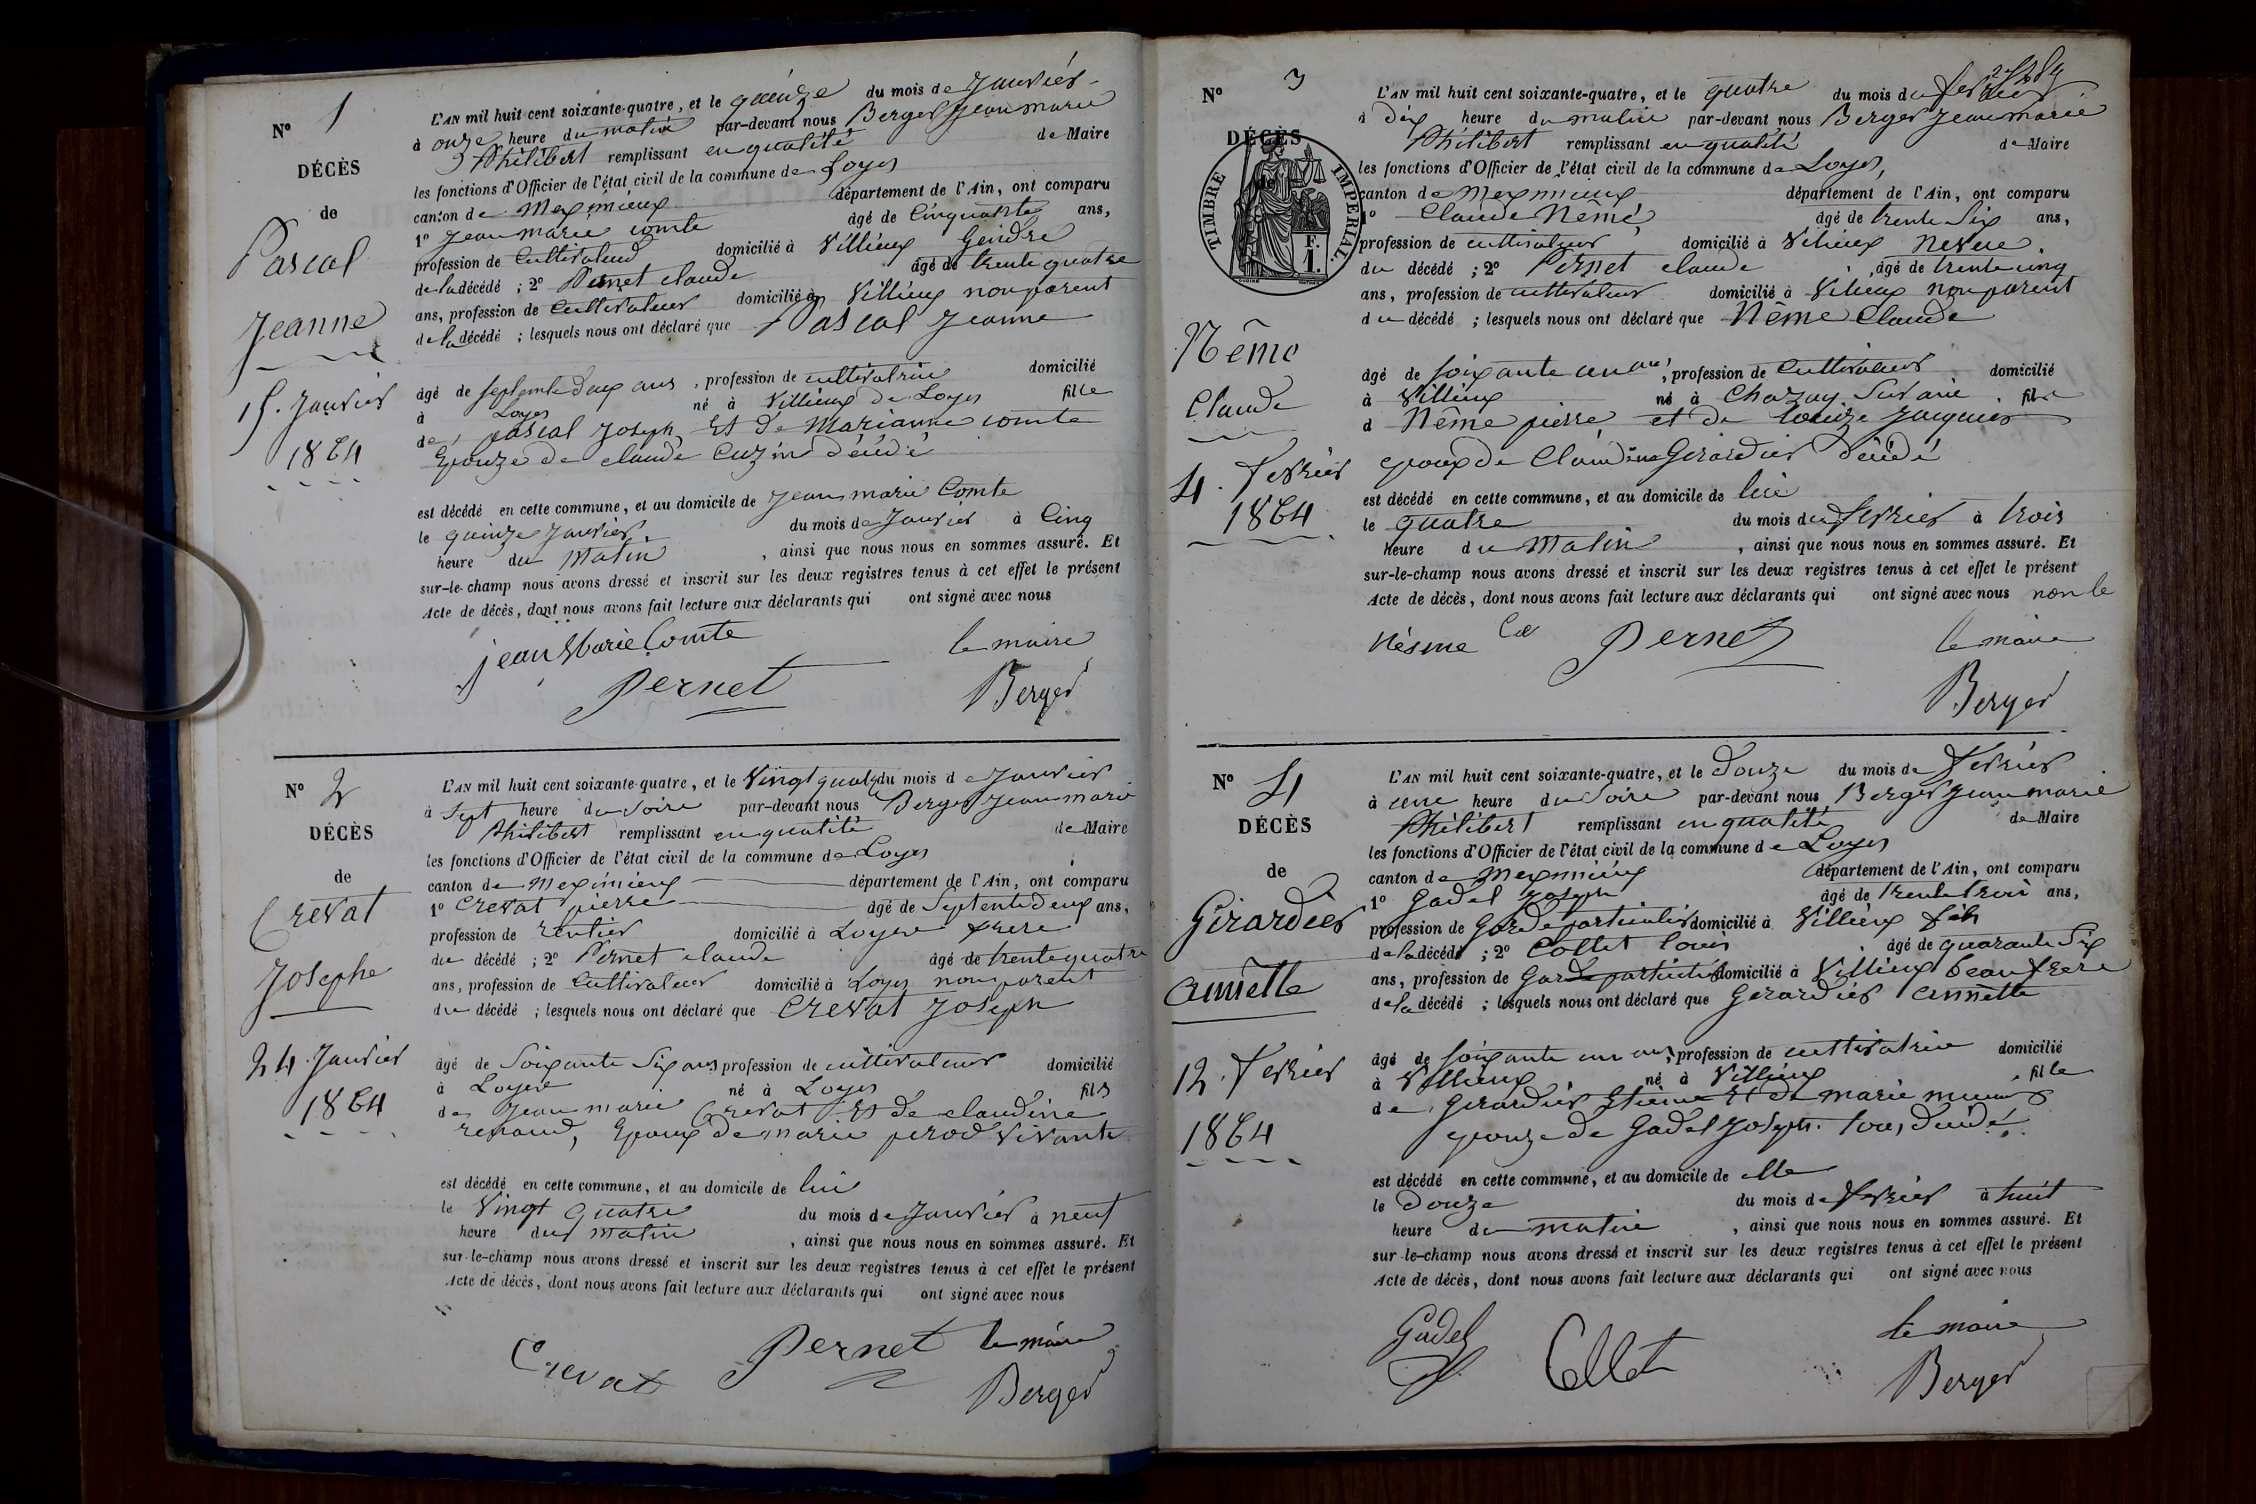 N° 1
DÉCÈS
de
Pascal
Jeanne
15. Janvier
1864
L'AN mil huit cent soixante-quatre, et le quinze du mois de Janvier
à onze heure du matin par-devant nous Berger Jean marie
Philibert remplissant en qualité de Maire
les fonctions d'Officier de l'état civil de la commune de Loyes
canton de Meximieux département de l'Ain, ont comparu
1° Jean marie comte âgé de Cinquante ans,
profession de Cultivateur domicilié à Villieux Gendre
de la décédé ; 2° Pernet claude âgé de trente quatre
ans, profession de Cultivateur domicilié à Villieux non parent
de la décédé ; lesquels nous ont déclaré que Pascal Jeanne
âgé de septente deux ans, profession de cultivatrice domicilié
à Loyes né à Villieux de Loyes fille
de pascal Joseph Et de Marianne comte
Epouze de claude Cuzin dédé
est décédé en cette commune, et au domicile de Jean marie Comte
le quinze Janvier du mois de Janvier à Cinq
heure du Matin, ainsi que nous nous en sommes assuré. Et
sur-le-champ nous avons dressé et inscrit sur les deux registres tenus à cet effet le présent
Acte de décès, dont nous avons fait lecture aux déclarants qui ont signé avec nous
jean Marie Comte le maire
Pernet Berger
N° 2
DÉCÈS
de
Crevat
Josephe
24 Janvier
1864
L'AN mil huit cent soixante-quatre, et le Vingt quatre du mois de Janvier
à Sept heure du Soire par-devant nous Berger Jean marie
Philibert remplissant en qualité de Maire
les fonctions d'Officier de l'état civil de la commune de Loyes
canton de Meximieux département de l'Ain, ont comparu
1° Crevat pierre âgé de Septente deux ans,
profession de rentier domicilié à Loyes frere
du décédé ; 2° Pernet claude âgé de trente quatre
ans, profession de Cultivateur domicilié à Loyes non parent
du décédé ; lesquels nous ont déclaré que Crevat Joseph
âgé de Soixante Six ans profession de cultivateur domicilié
à Loyes né à Loyes fils
de Jean marie Crevat Et de claudine
renaud, Epoux de marie perod Vivante
est décédé en cette commune, et au domicile de lui
le Vingt Quatre du mois de Janvier à neuf
heure du matin, ainsi que nous nous en sommes assuré. Et
sur-le-champ nous avons dressé et inscrit sur les deux registres tenus à cet effet le présent
Acte de décès, dont nous avons fait lecture aux déclarants qui ont signé avec nous
Crevat Pernet le maire
Berger
N° 3
DÉCÈS
de
TIMBRE IMPÉRIAL
F.
1.
Nême
Claude
4. Fevrier
1864
L'AN mil huit cent soixante-quatre, et le quatre du mois du Fevrier
à dix heure du matin par-devant nous Berger Jean marie
Philibert remplissant en qualité de Maire
les fonctions d'Officier de l'état civil de la commune de Loyes,
canton de Meximieux département de l'Ain, ont comparu
1° Claude Nême, âgé de trente Six ans,
profession de cultivateur domicilié à Vilieux neveu.
du décédé ; 2° Pernet claude, âgé de trente cinq
ans, profession de cultivateur domicilié à Vilieux non parent
du décédé ; lesquels nous ont déclaré que Nême Claude
âgé de soixante un ans, profession de Cultivateur domicilié
à Villieux né à Chazay Sur ain fils
d Nême pierre et de Louize Jacques
epoux de Claudine Girardier dédé
est décédé en cette commune, et au domicile de lui
le quatre du mois du fevrier à trois
heure du Matin, ainsi que nous nous en sommes assuré. Et
sur-le-champ nous avons dressé et inscrit sur les deux registres tenus à cet effet le présent
Acte de décès, dont nous avons fait lecture aux déclarants qui ont signé avec nous non le
Nésme Cde Pernet le maire
Berger
N° 4
DÉCÈS
de
Girardier
annette
12. Fevrier
1864
L'AN mil huit cent soixante-quatre, et le Douze du mois de Fevrier
à une heure du Soire par-devant nous Berger Jean marie
Philibert remplissant en qualité de Maire
les fonctions d'Officier de l'état civil de la commune de Loyes
canton de Meximieux département de l'Ain, ont comparu
1° Gadel Joseph âgé de trente trois ans,
profession de Garde particulier domicilié à Villieux fils
de la décédé ; 2° Collet Louis âgé de quarante Six
ans, profession de Garde particulier domicilié à Villieux beau frere
de la décédé ; lesquels nous ont déclaré que Gerardier annette
âgé de soixante un ans, profession de cultivatrice domicilié
à Villieux né à Villieux fille
de Girardier Etienne Et de marie
epouze de Gadel Joseph. tous dédé.
est décédé en cette commune, et au domicile de elle
le Douze du mois de fevrier à huit
heure du matin, ainsi que nous nous en sommes assuré. Et
sur-le-champ nous avons dressé et inscrit sur les deux registres tenus à cet effet le présent
Acte de décès, dont nous avons fait lecture aux déclarants qui ont signé avec nous
Gadel Collet le maire
Berger